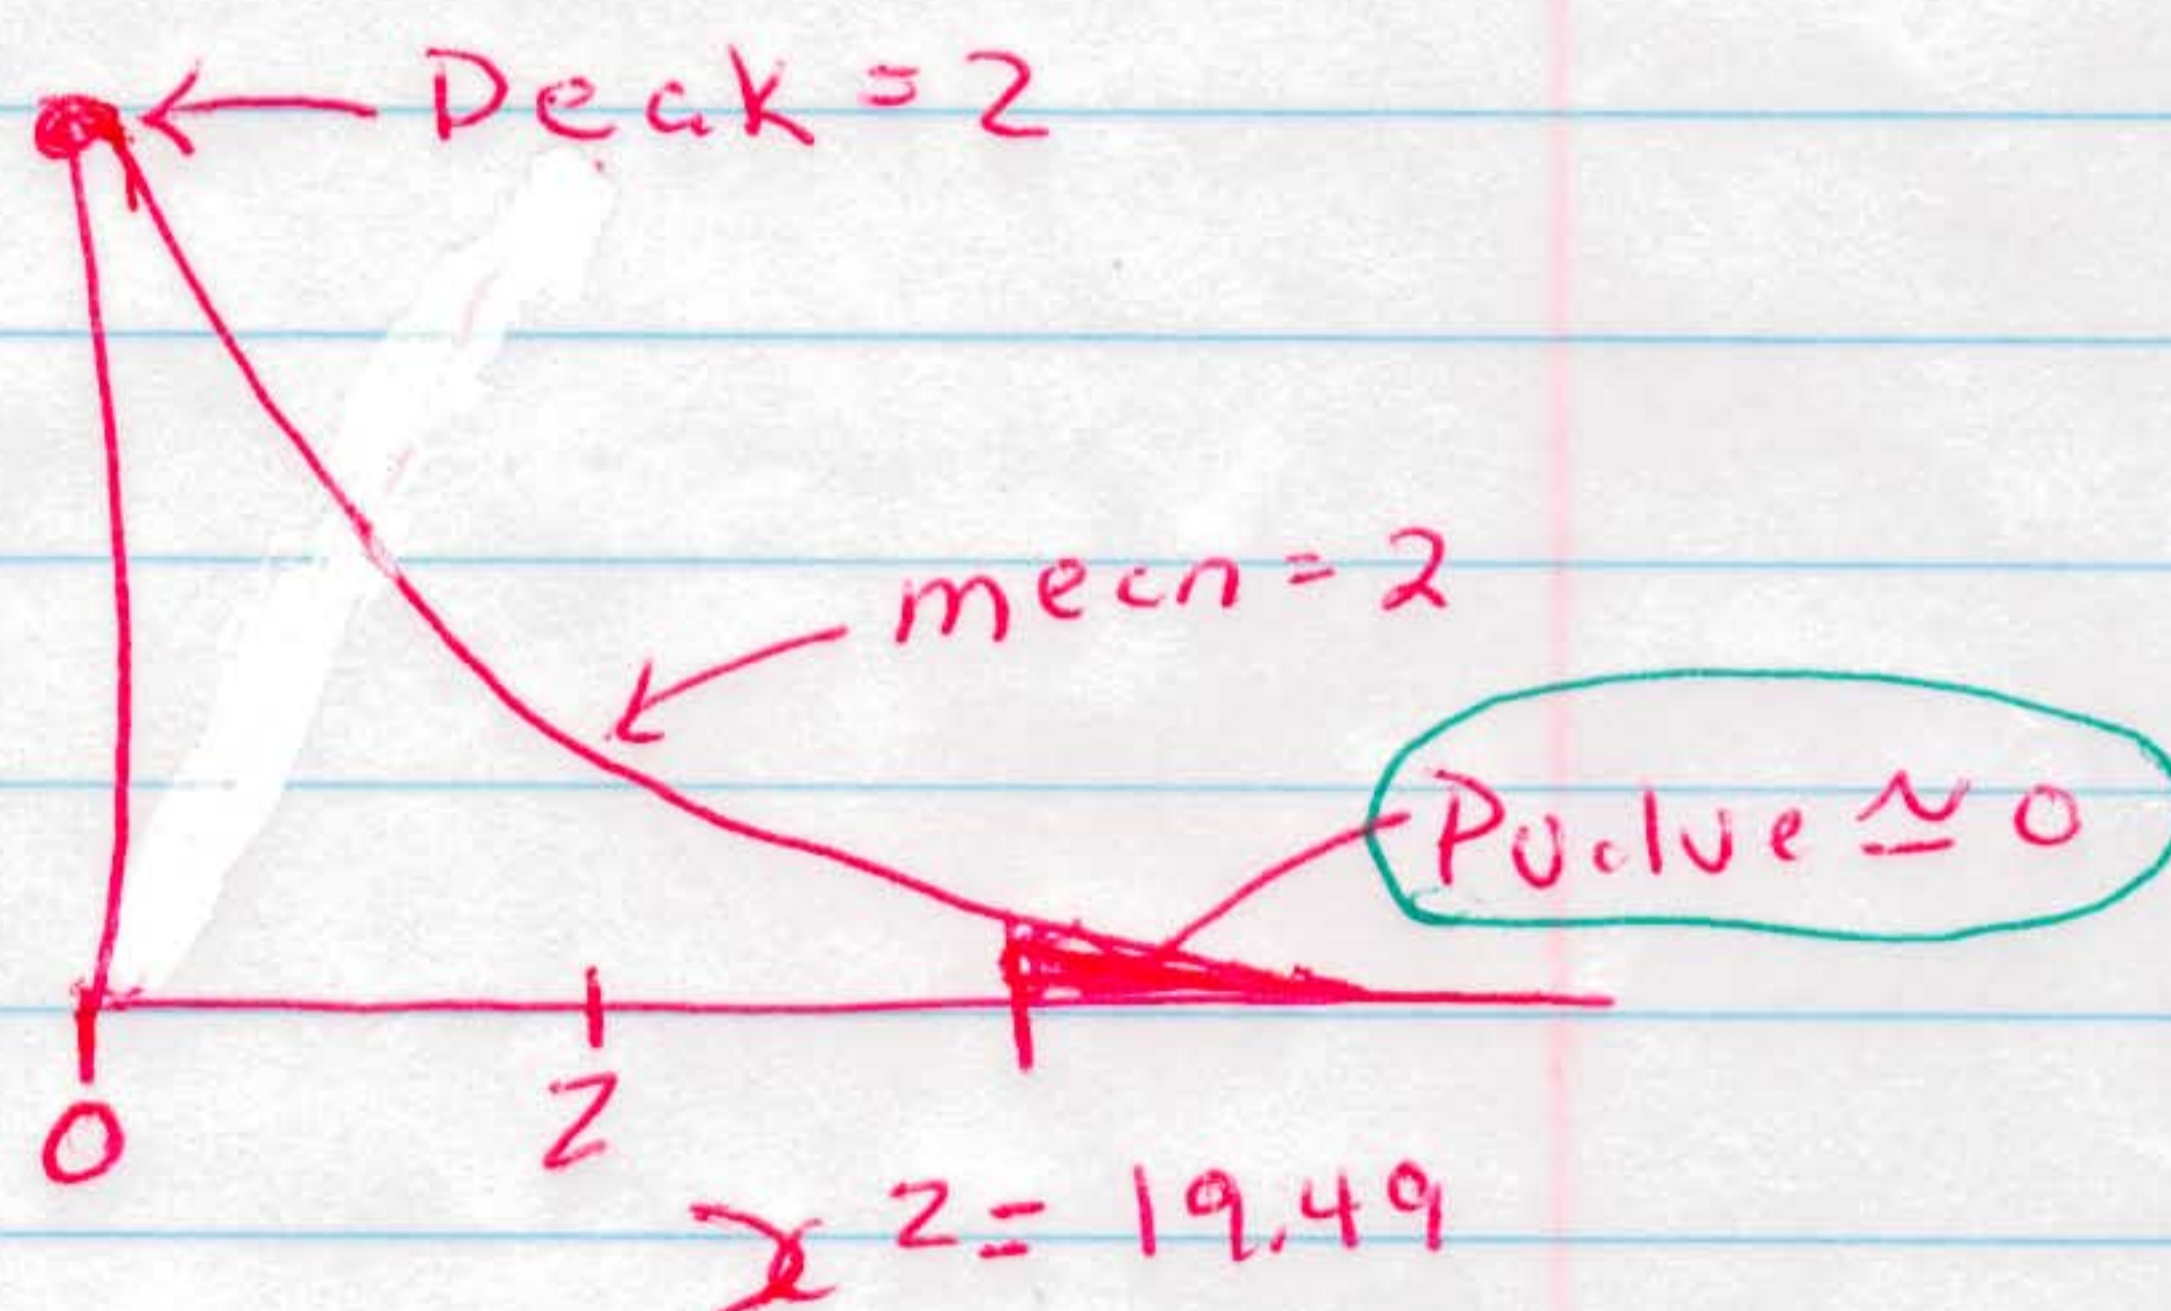 Peak = 2
mean = 2
Pvalue ≃ 0
0
2
χ² = 19.49